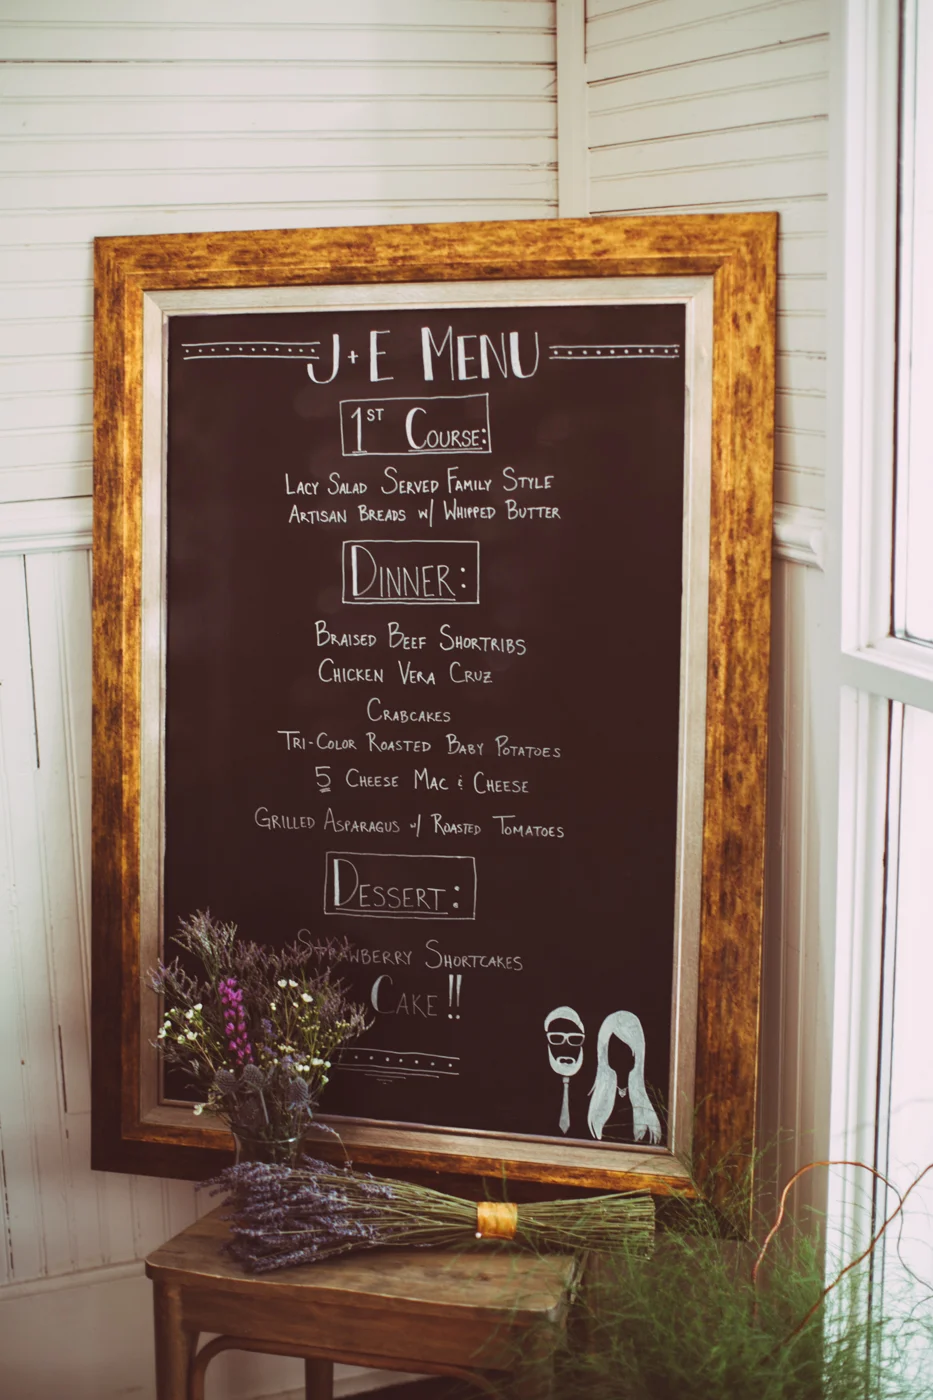 J+E MENU
1ST COURSE:
LACY SALAD SERVED FAMILY STYLE
ARTISAN BREADS W/ WHIPPED BUTTER
DINNER:
BRAISED BEEF SHORTRIBS
CHICKEN VERA CRUZ
CRABCAKES
TRI-COLOR ROASTED BABY POTATOES
5 CHEESE MAC & CHEESE
GRILLED ASPARAGUS W/ ROASTED TOMATOES
DESSERT:
STRAWBERRY SHORTCAKES
CAKE!!